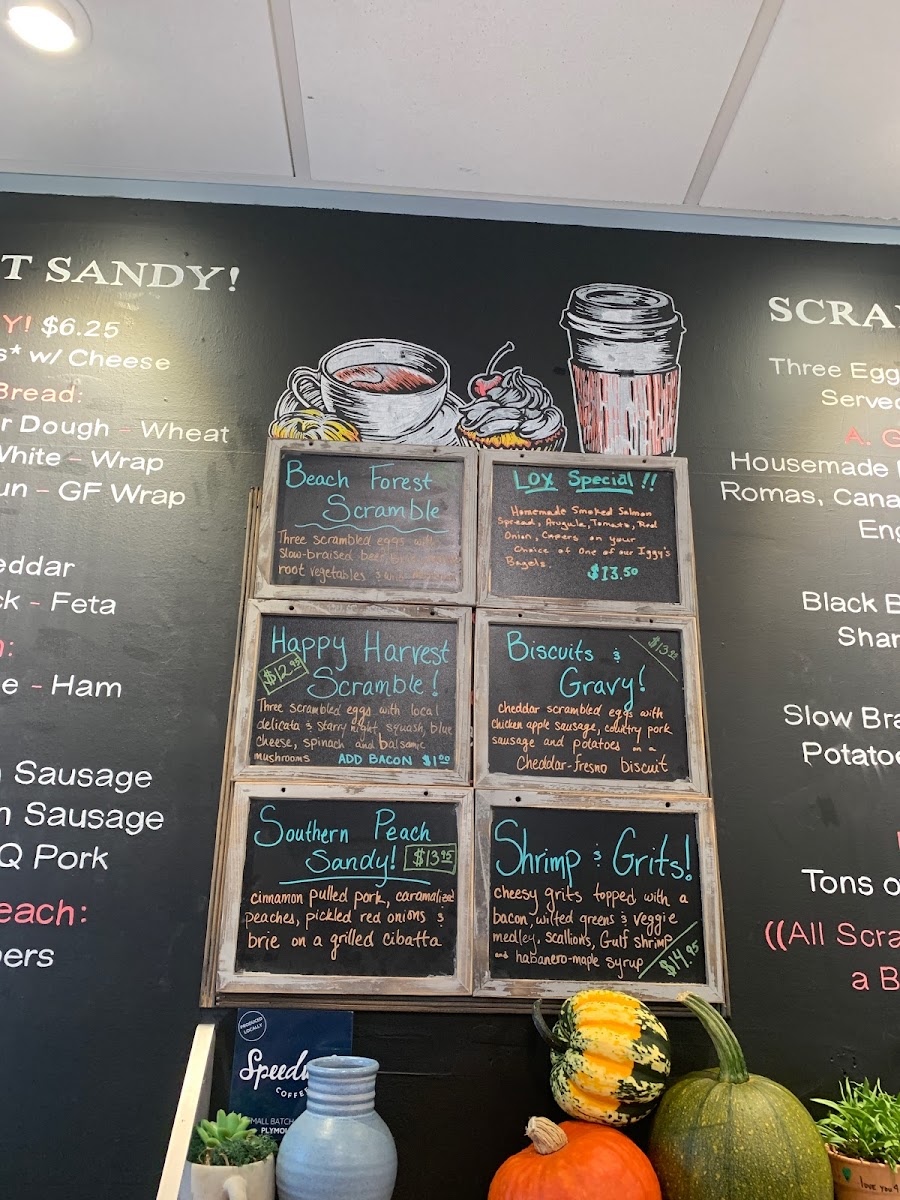 T SANDY!
Y! $6.25
s* w/ Cheese
Bread:
r Dough - Wheat
White - Wrap
un - GF Wrap
eddar
ck - Feta
:
e - Ham
Sausage
n Sausage
Q Pork
each:
pers
Beach Forest
Scramble
Three scrambled eggs with
slow-braised beef
root vegetables &
LOX Special !!
Homemade Smoked Salmon
Spread, Arugula, Tomato, Red
Onion, Capers on your
Choice of One of our Iggy's
Bagels.
$13.50
Happy Harvest
$12.95
Scramble!
Three scrambled eggs with local
delicata & starry night squash, blue
cheese, spinach and balsamic
mushrooms ADD BACON $1.00
Biscuits &
Gravy!
cheddar scrambled eggs with
chicken apple sausage, country pork
sausage and potatoes on a
cheddar-fresno biscuit
Southern Peach
Sandy! $13.95
cinnamon pulled pork, caramalized
peaches, pickled red onions &
brie on a grilled cibatta
Shrimp & Grits!
cheesy grits topped with a
bacon, wilted greens & veggie
medley, scallions, Gulf shrimp
and habanero-maple syrup
$14.95
SCRA
Three Egg
Serve
A. G
Housemade
Romas, Cana
Eng
Black B
Shar
Slow Bra
Potatoe
Tons o
((All Scra
a B
PRODUCED
LOCALLY
Speedw
COFFEE
SMALL BATCH
PLYMOU
love you